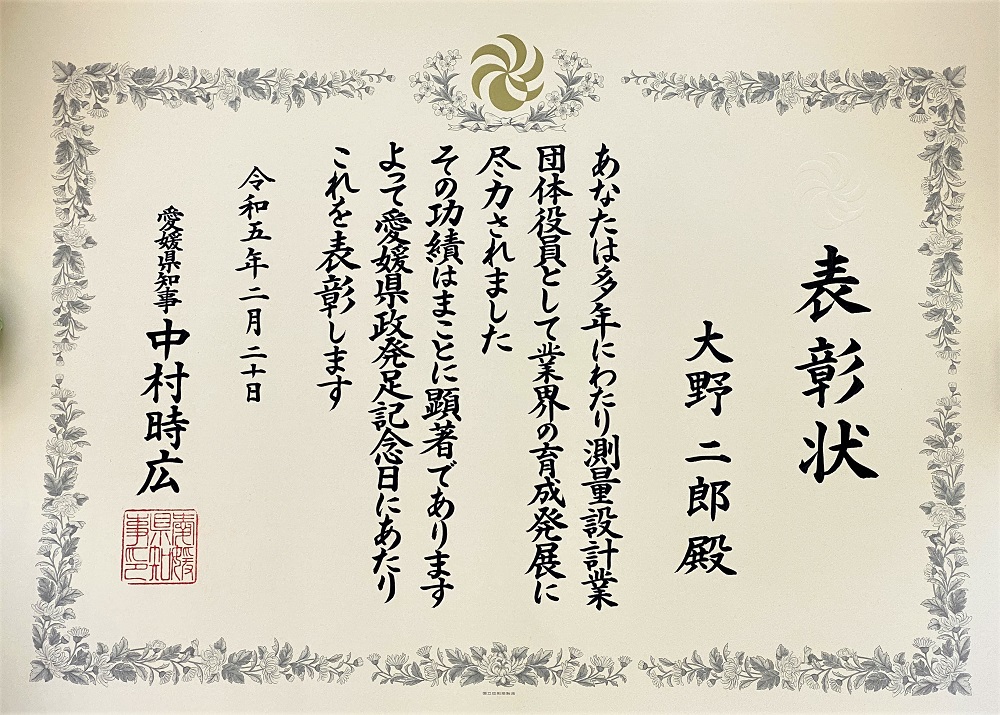 表彰状
大野二郎殿
あなたは多年にわたり測量設計業
団体役員として業界の育成発展に
尽力されました
その功績はまことに顕著であります
よって愛媛県政発足記念日にあたり
これを表彰します
令和五年二月二十日
愛媛県知事 中村時広
愛媛県知事印